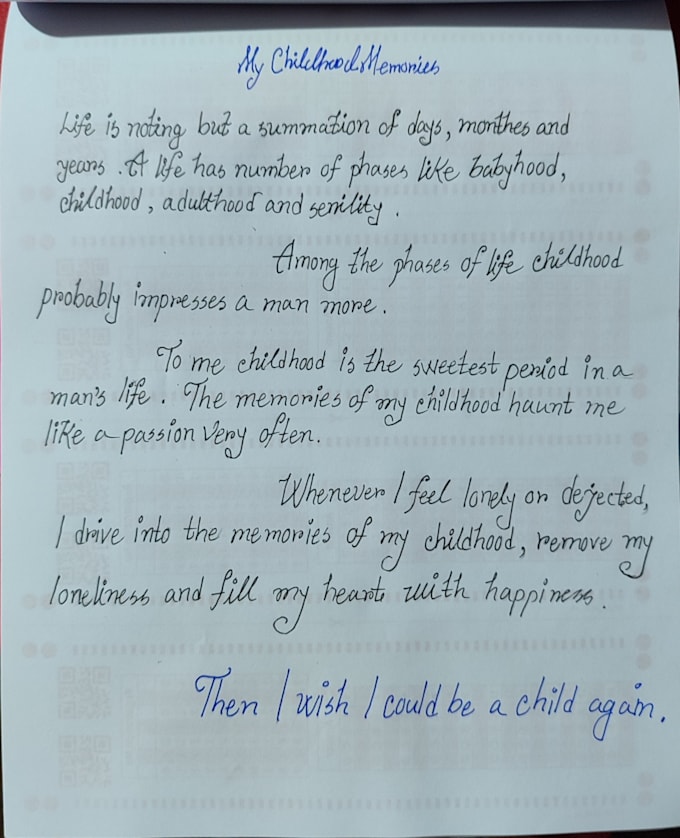 My Childhood Memories
Life is noting but a summation of days, monthes and
years . A life has number of phases like babyhood,
childhood , adulthood and senility .
Among the phases of life childhood
probably impresses a man more .
To me childhood is the sweetest period in a
man's life . The memories of my childhood haunt me
like a passion very often .
Whenever I feel lonely or dejected,
I drive into the memories of my childhood, remove my
loneliness and fill my heart with happiness .
Then I wish I could be a child again .